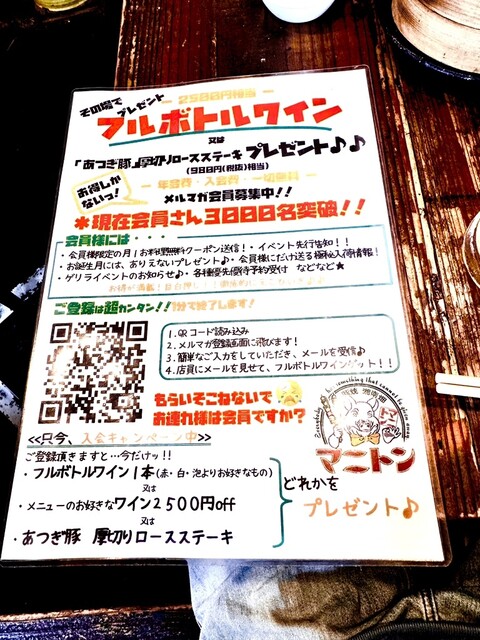 その場で
プレゼント
ー 2500円相当 ー
フルボトルワイン
又は
「あつぎ豚」厚切りロースステーキ プレゼント♪♪
(980円(税抜)相当)
お得しか
ないっ!
ー 年会費・入会費・一切無料 ー
メルマガ会員募集中!!
*現在会員さん3000名突破!!
会員様には・・・
・会員様限定の月1お料理無料クーポン送信!・イベント先行告知!!
・お誕生月には、ありえないプレゼント♪・会員様にだけ送る極秘入荷情報!
・ゲリライベントのお知らせ♪・各種優先優待予約受付 などなど★
ご登録は超カンタン!!1分で終了します!
1.QRコード読み込み
2.メルマガ登録画面に飛びます!
3.簡単なご入力をしていただき、メールを受信♪
4.店員にメールを見せて、フルボトルワインゲット!!
もらいそこねないで
お連れ様は会員ですか?
マニトン
<<只今、入会キャンペーン中>>
ご登録頂きますと…今だけッ!!
・フルボトルワイン1本(赤・白・泡よりお好きなもの)
又は
・メニューのお好きなワイン2500円off
又は
・あつぎ豚 厚切りロースステーキ
どれかを
プレゼント♪